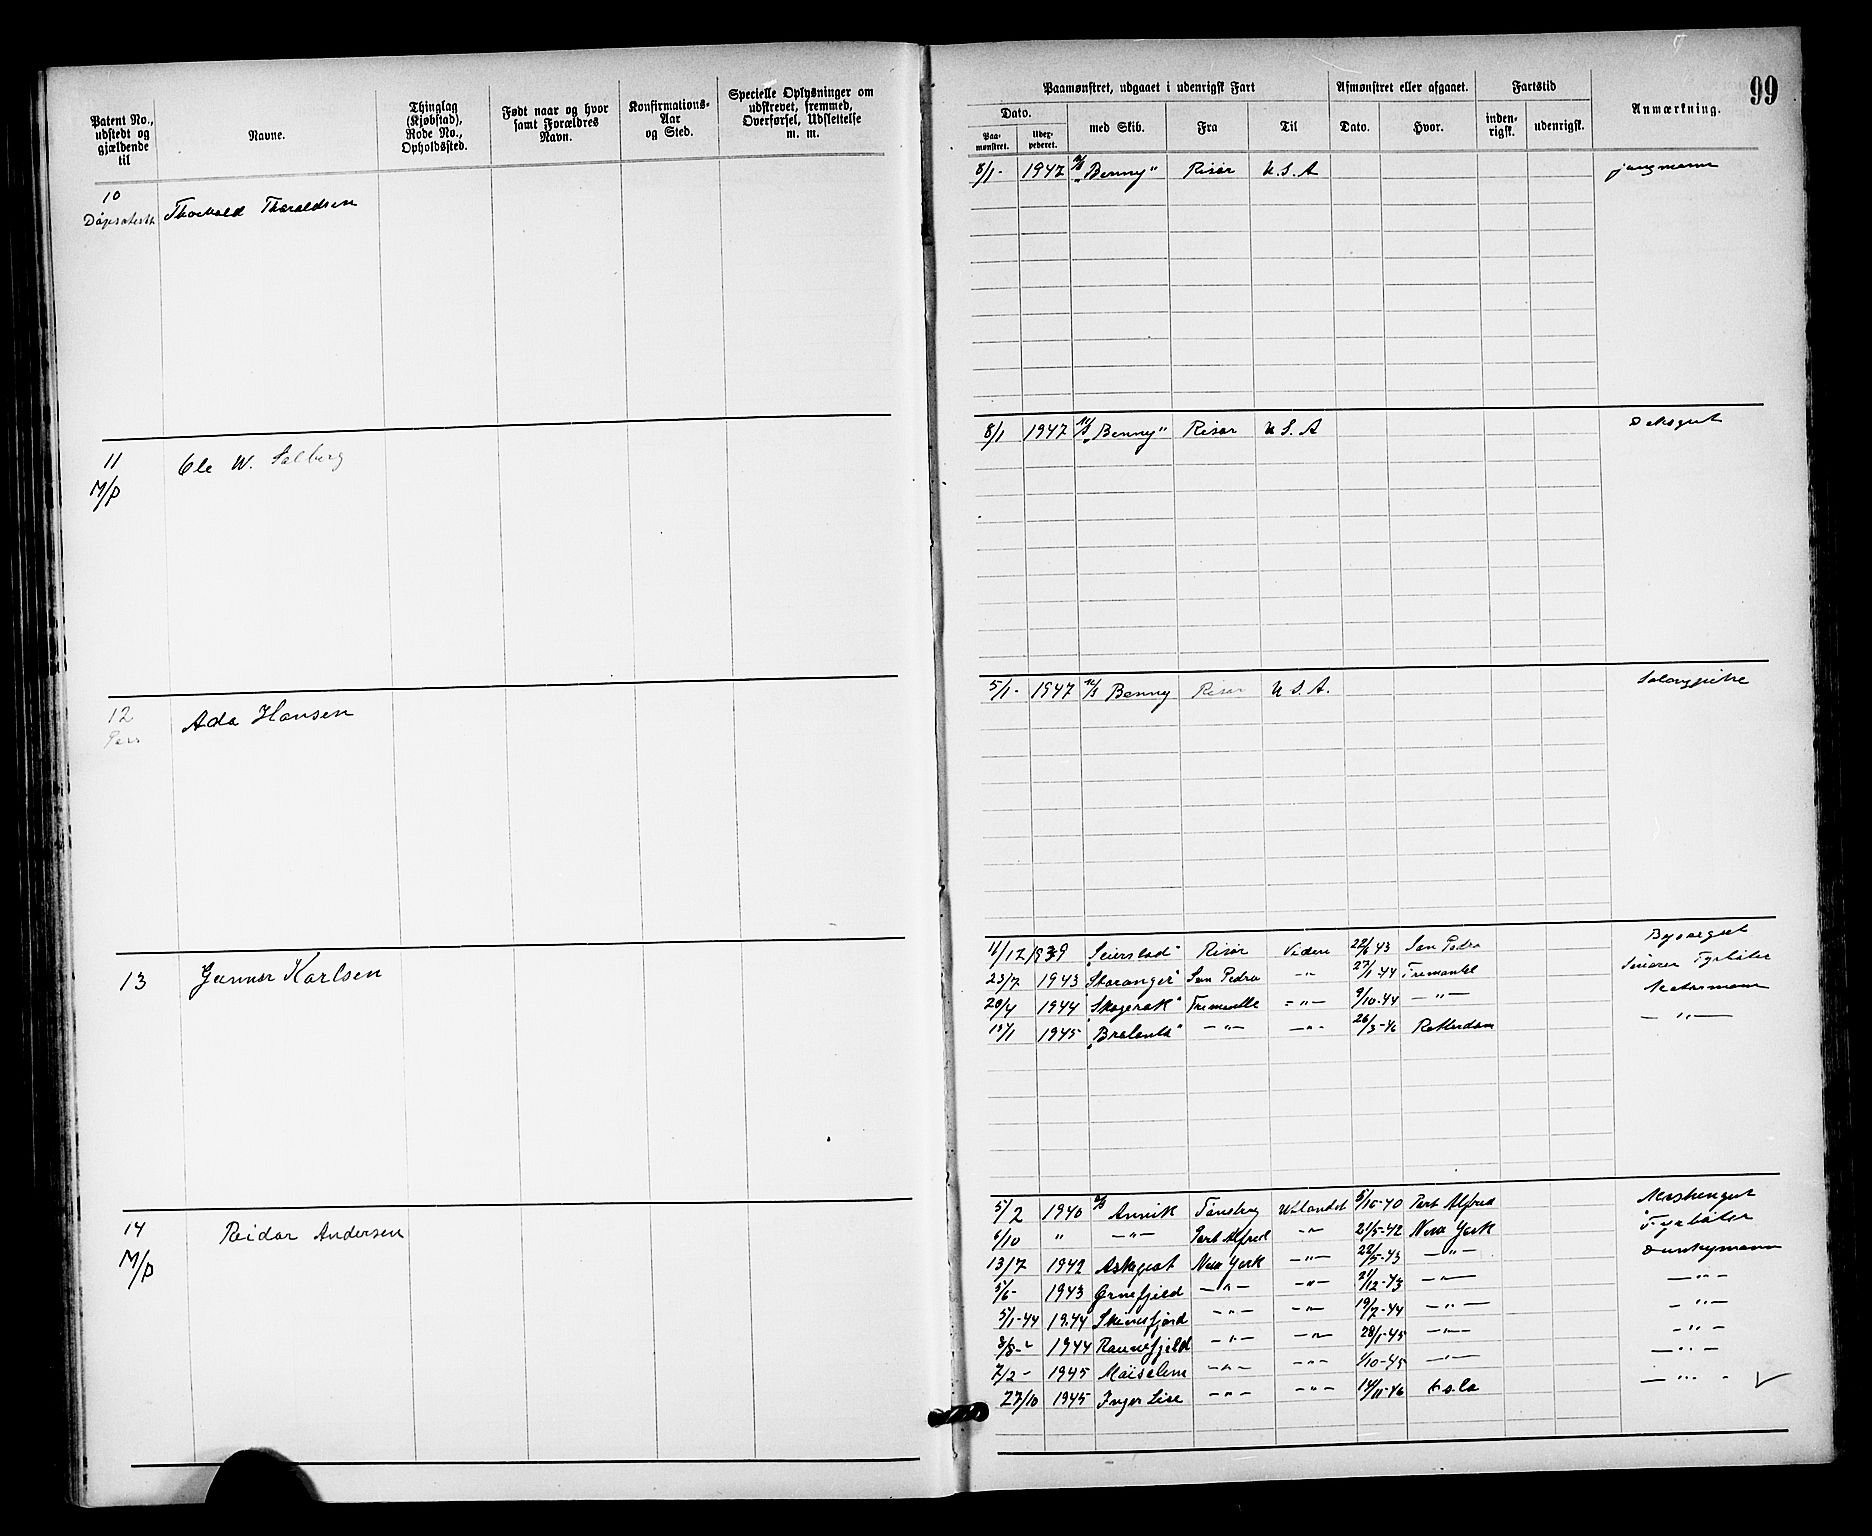 99
Patent No., udstedt og gjældende til | Navne. | Thinglag (Kjøbstad), Rode No., Opholdssted. | Født naar og hvor samt Forældres Navn. | Konfirmations-Aar og Sted. | Specielle Oplysninger om udskrevet, fremmed, Overførsel, Udslettelse m. m.
Paamønstret, udgaaet i udenrigsk Fart | Afmønstret eller afgaaet. | Fartstid | Anmærkning.
Dato. | med Skib. | Fra | Til | Dato. | Hvor. | inden-rigsk. | udenrigsk.
Paa-mønstret.
10 Thorvald Thoraldsen
8/1- 1947 M/S "Benny" Risør U.S.A jungmann
11 M/P Ole W. Solberg
8/1 1947 M/S "Benny" Risør U S. A Deksgut
12 Ada Hansen
5/1- 1947 M/S Benny Risør U S. A. Salongpike
13 Gunnar Karlsen
11/12 1939 "Seierstad" Risør Videre 22/6 43 San Pedro Byssegut
23/7 1943 "Storanger" San Pedro -"- 27/1-44 Fremantel Smører Fyrbøter
20/4 1944 "Skagerak" Fremantle -"- 9/10-44 -"- Motormann
15/1 1945 "Bralanta" -"- -"- 26/3-46 Rotterdam -"-
14 M/P Reidar Andersen
5/2 1940 M/S Annik Tønsberg Utlandet 5/10-40 Port Alfred Maskingut
6/10 " -"- Port Alfred -"- 21/5-42 New York Fyrbøter
13/7 1942 Askepot New York -"- 22/5-43 -"- Dunkymann
5/6- 1943 Ørnefjeld -"- -"- 21/12-43 -"- -"-
5/1-44 1944 Skiensfjord -"- -"- 19/7-44 -"- -"-
8/8- 1944 Ravnefjeld -"- -"- 28/1-45 -"- -"-
7/2- 1945 Møiselem -"- -"- 1/10-45 -"- -"-
27/10 1945 Inger Lise -"- -"- 14/11-46 Oslo -"-